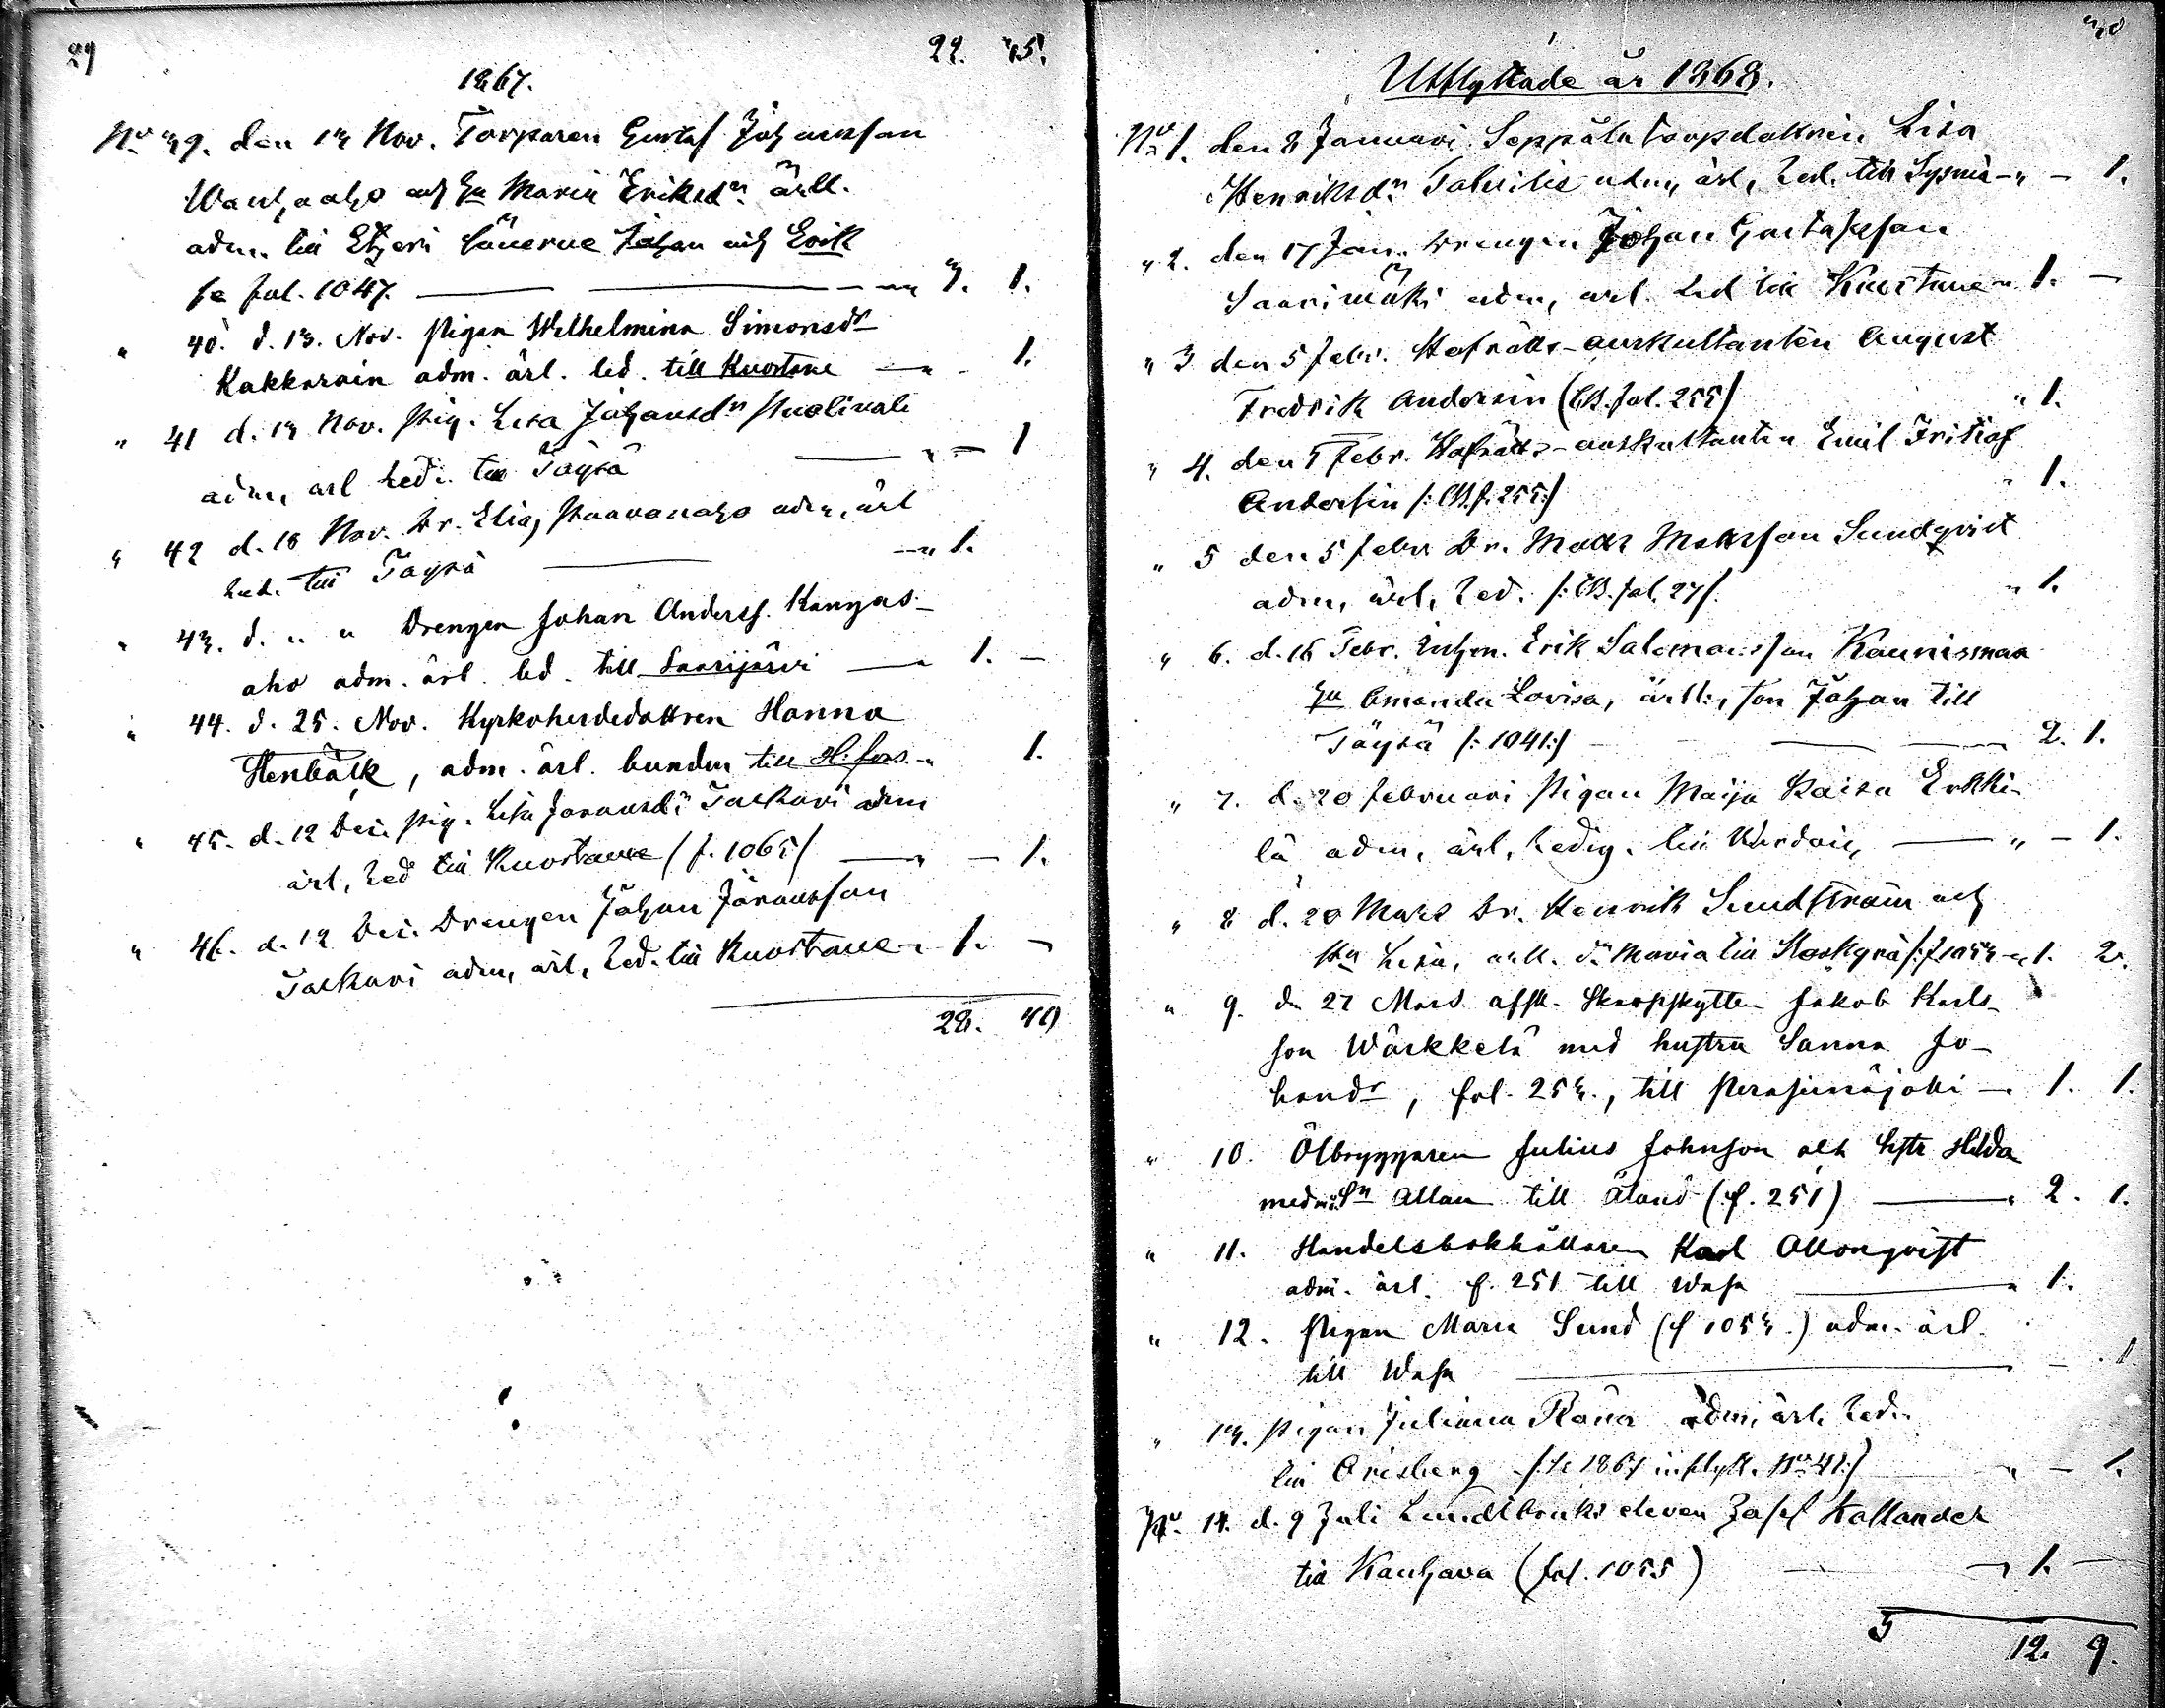 29
22. 35.
1867.
No 39. den 13 Nov. Torparen Gustaf Johansson
Wanhaaho och hu Maria Eriksdr ärll.
adm. till Etseri sönerne Johan och Erik
se fol. 1047. — — " 3. 1.
" 40. d. 13. Nov. Pigan Wilhelmina Simonsdr
Kakkorain adm. ärl. led. till Kuortane — " - 1.
" 41 d. 13 Nov. Pig. Lisa Johansdr Puolivali
adm, ärl led. till Töysä — " - 1
" 42 d. 18 Nov. Dr. Elias Paavonaho adm, ärl
led. till Töysä — " 1.
" 43. d. " " Drengen Johan Anderss. Kangas-
aho adm. ärl. led. till Saarijärvi — " 1. -
" 44. d. 25. Nov. Kyrkoherdedottren Hanna
Stenbäck, adm. ärl. bunden till H:fors. - " 1.
" 45. d. 12 Dec. Pig. Lisa Joransdr Taskari adm
ärl, led till Kuortane (f. 1065) — " - 1.
" 46. d. 12 Dec. Drengen Johan Joransson
Taskari adm, ärl, led. till Kuortane " 1. -
28. 40
30
Utflyttade år 1868.
No 1. den 8 Januari Seppälä torpdottren Lisa
Henriksdr adm, ärl, led. till - " - 1.
" 2. den 17 Jan. Drengen Johan Gustafsson
Saarimäki adm, ärl. led till Kuortane " 1. -
" 3 den 5 Febr. Hofrätts-auskultanten August
Fredrik Andersin (CB. fol. 255) " 1.
" 4. den 5 Febr. Hofrätts-auskultanten Emil Fritiof
Andersin /: CB. f. 255:/ " 1.
" 5 den 5 Febr Dr. Matts Mattsson Sundqvist
adm, ärl, led. /: CB. fol. 27/. " 1.
" 6. d. 16 Febr. Inhm. Erik Salomonsson Kaunismaa
hu Amanda Lovisa, ärll:, son Johan till
Töysä /: 1041:/ - — — 2. 1.
" 7. d. 20 Februari Pigan Maija Kaisa Erkki-
lä adm, ärl, ledig. till Wirdois, — " - 1.
" 8 d. 20 Mars Dr. Henrik Sundström och
hu Lisa, ärll. dr Maria till Storkyro /: f 1053 - " 1. 2.
" 9. dn 27 Mars afsk. Skarpskytten Jakob Karls-
son Wärkkelä med hustru Sanna Jo-
handr, fol. 253., till Peräseinäjoki - " 1. 1.
" 10. Ölbryggaren Julius Johnson och hstr Hilda
med m. Sn Allan till Åland (f. 251) — " 2. 1.
" 11. Handelsbokhållaren Karl Allonqvist
adm. ärl. f. 251 till Wasa — " 1.
" 12. Pigan Maria Sund (f 1053.) adm. ärl.
till Wasa — - 1.
" 13. Pigan Juliana Råna adm, ärl, led.
till Orisberg /: se 1867 inflytt. No 41:/ " - 1.
No 14. d. 9 Juli Landtbruks eleven Josef Kallander
till Kauhava (fol. 1055) — " 1. -
3
12. 9.